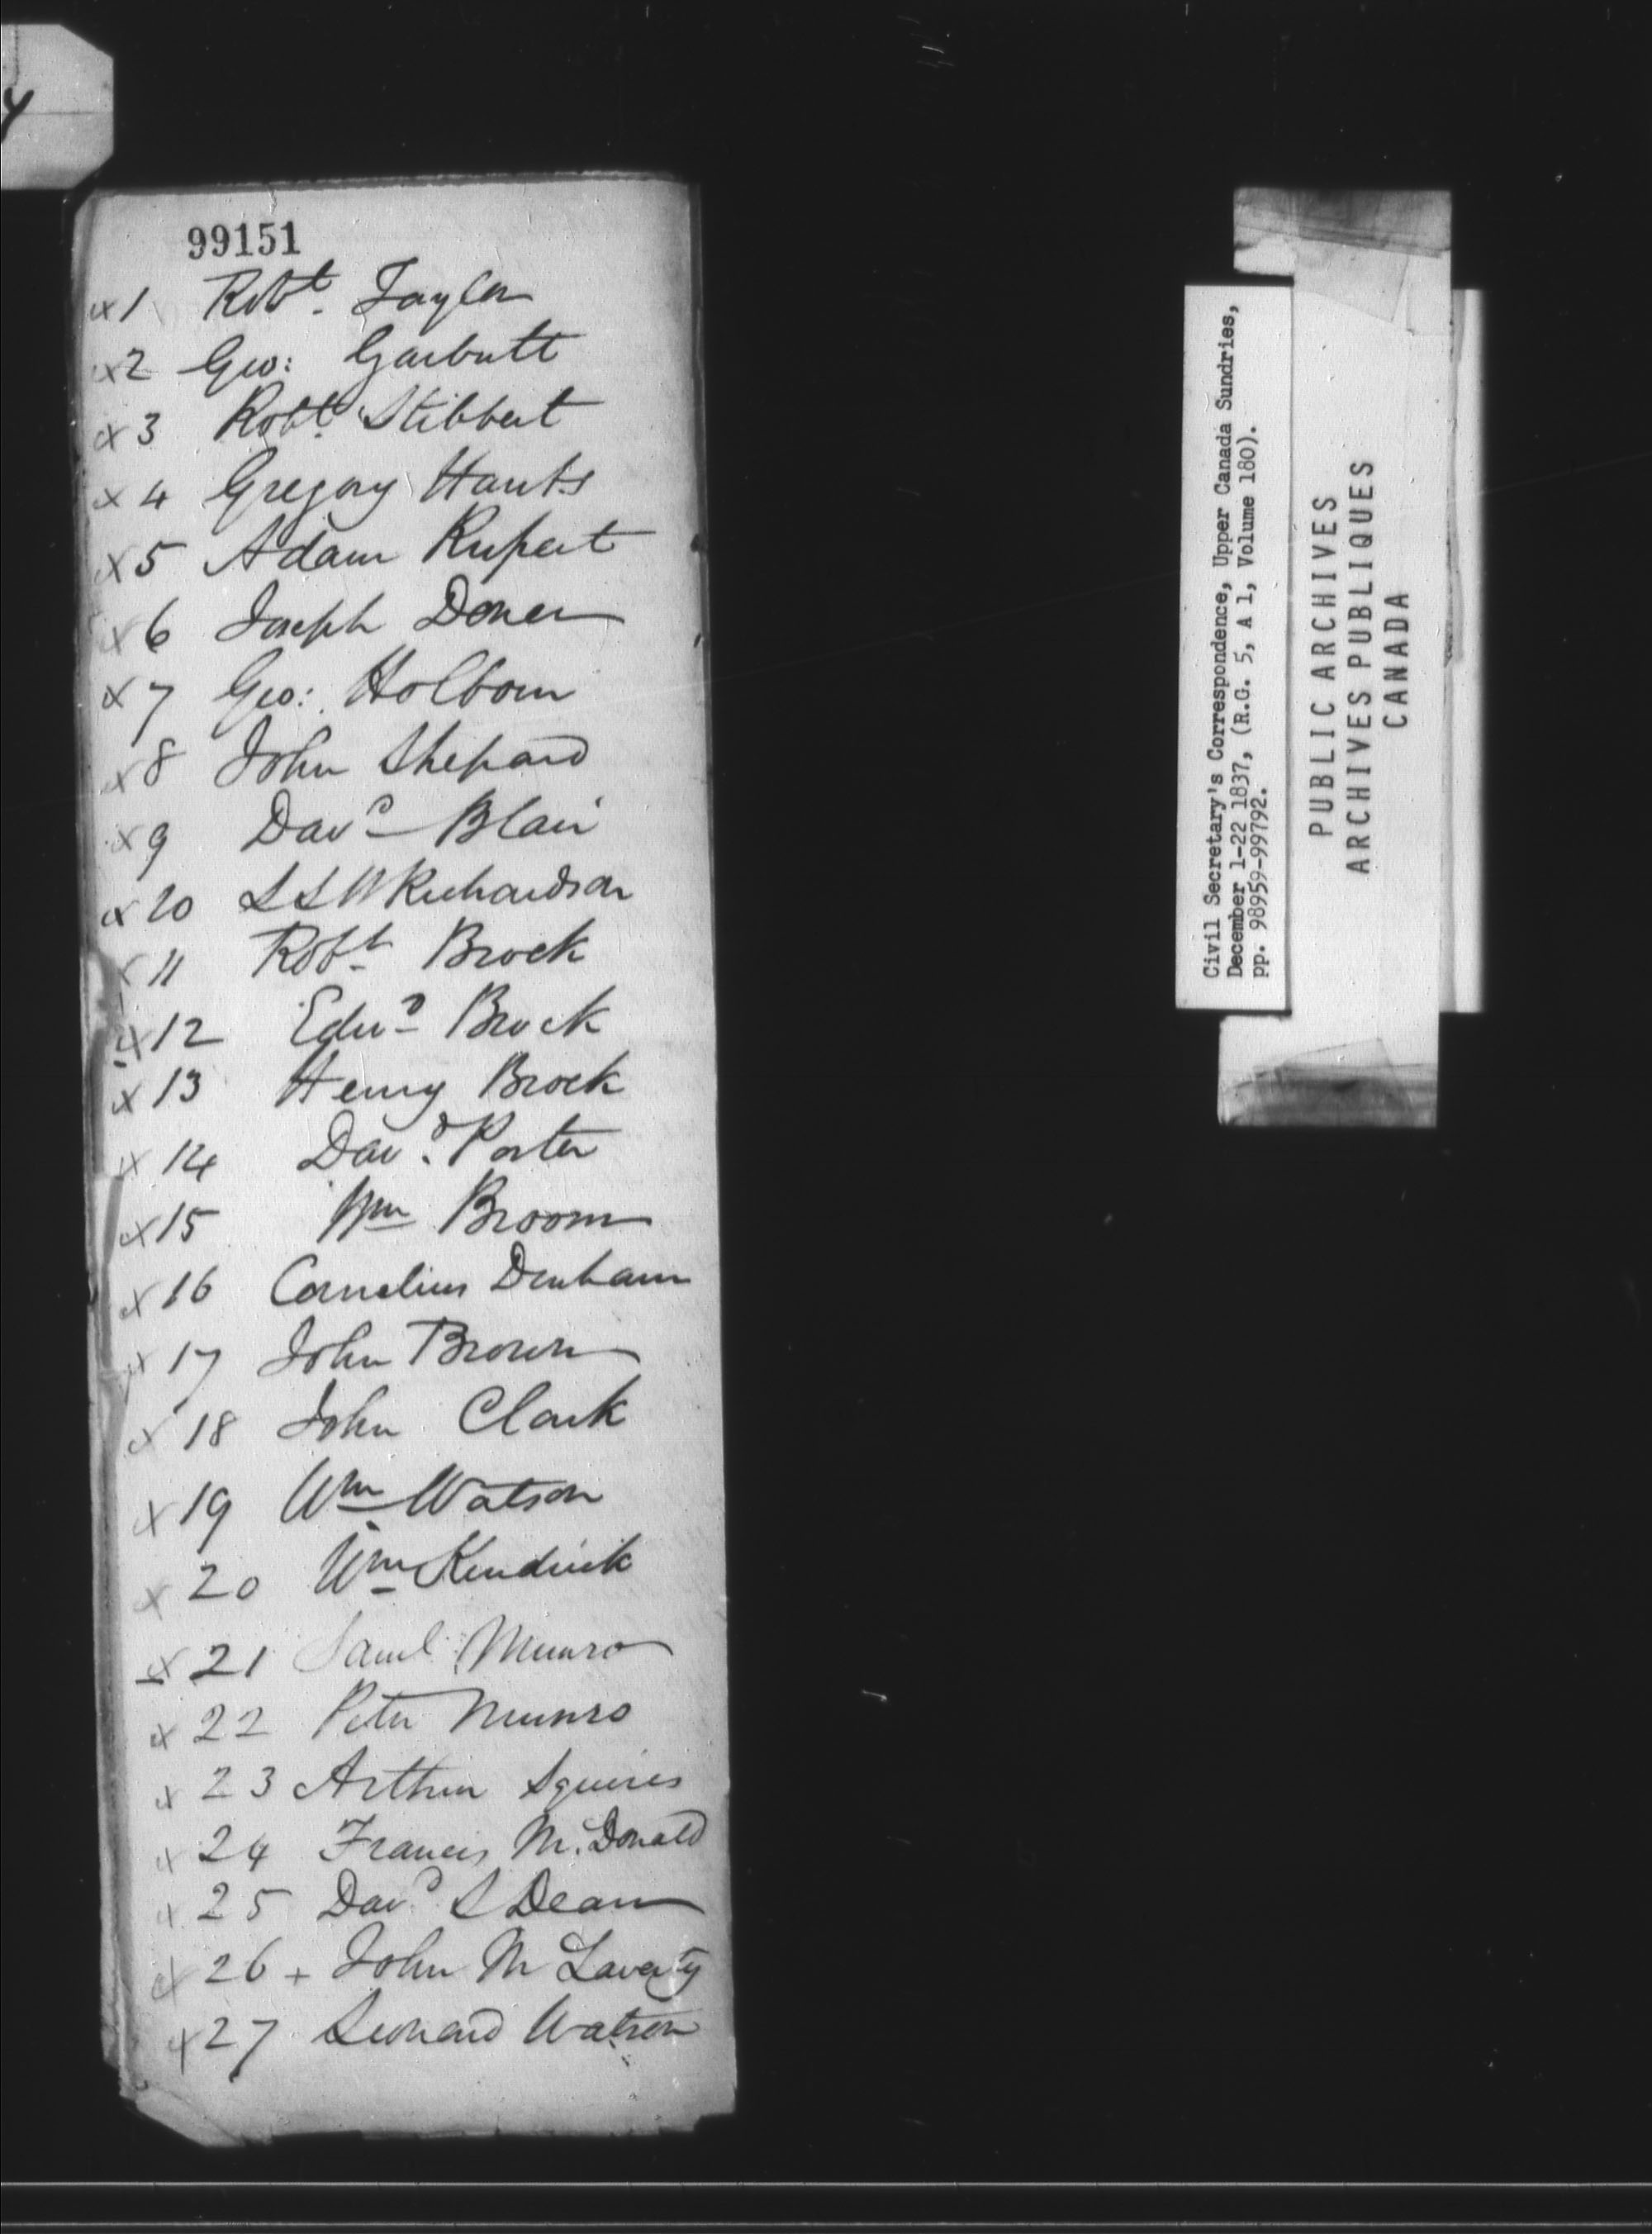 y
99151
x 1 Robt. Taylor
x 2 Geo: Garbutt
x 3 Robt. Stibbert
x 4 Gregory Hants
x 5 Adam Rupert
x 6 Joseph Doner
x 7 Geo: Holborn
x 8 John Shepard
x 9 Davd Blair
x 10 Richardson
x 11 Robt. Brock
x 12 Edwd Brock
x 13 Henry Brock
x 14 Davd. Porter
x 15 Wm Broom
x 16 Cornelius Denham
x 17 John Brown
x 18 John Clark
x 19 Wm Watson
x 20 Wm Kendrick
x 21 Saml Munro
x 22 Peter Munro
x 23 Arthur Squires
x 24 Francis Mc.Donald
x 25 Davd S Dean
x 26 + John Mc Laverty
x 27 Leonard Watson
Civil Secretary's Correspondence, Upper Canada Sundries,
December 1-22 1837, (R.G. 5, A 1, Volume 180).
pp. 98959-99792.
PUBLIC ARCHIVES
ARCHIVES PUBLIQUES
CANADA